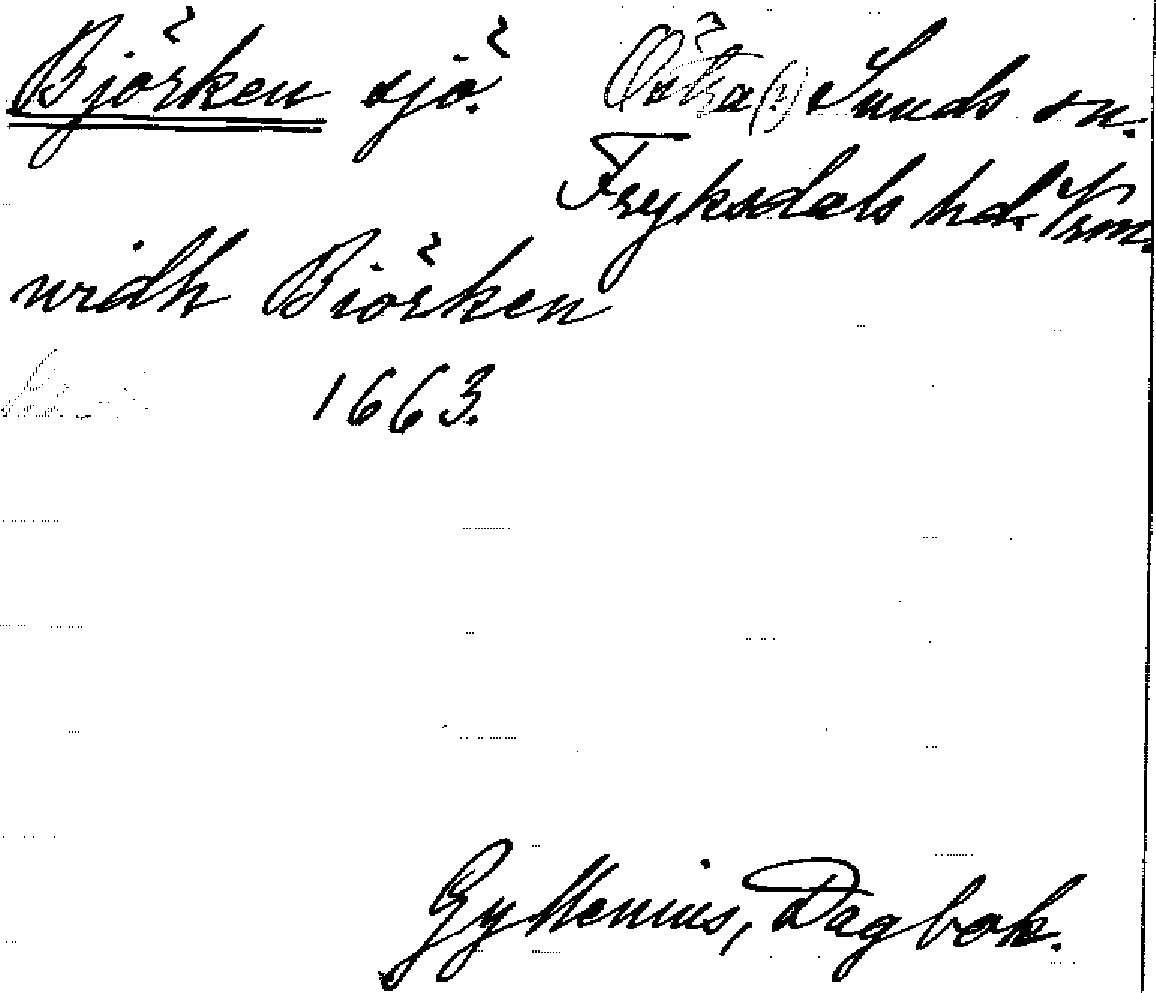 Björken sjö. Östra (?) Sunds sn.
Fryksdals hd. Vrm.
widh Biörken
1663.
Gyllenius, Dagbok.